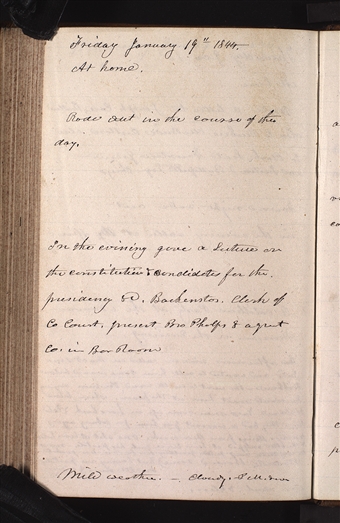 Friday January 19th 1844.
At home.
Rode out in the course of the
day,
In the evining gave a Lecture on
the constitution & candidates for the
presidency &c. Backenstos. Clerk of
Co Court. present Bro Phelps & a great
Co. in Bar Room
Mild weather. — Cloudy.